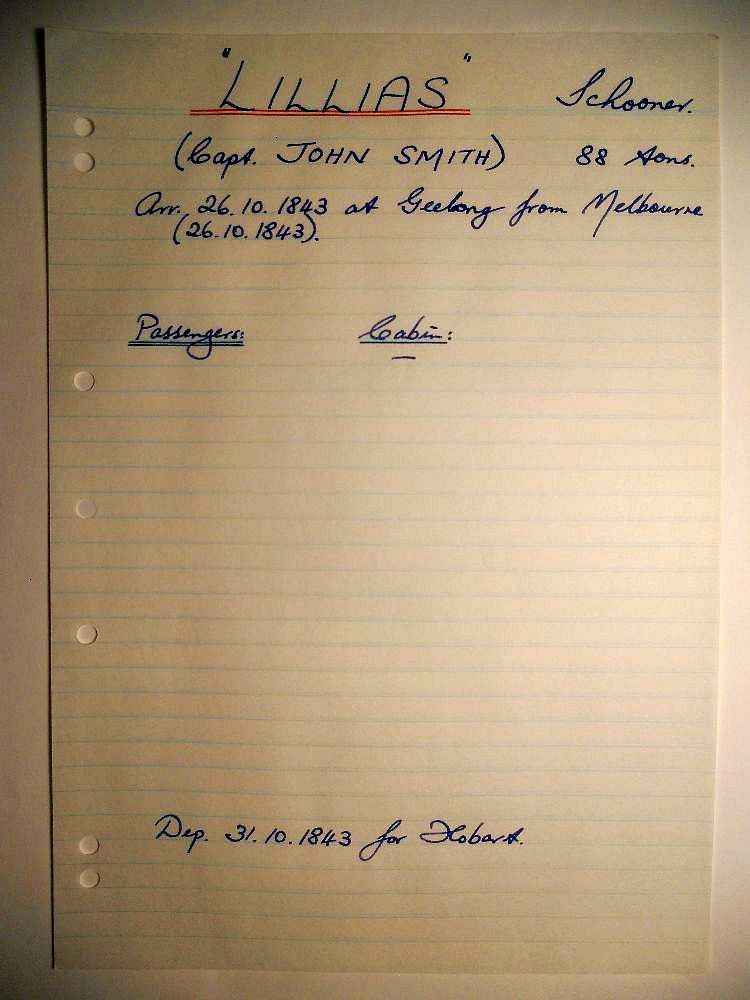 "LILLIAS" Schooner.
(Capt. JOHN SMITH) 88 tons.
Arr. 26.10.1843 at Geelong from Melbourne
(26.10.1843).
Passengers: Cabin:
—
Dep. 31.10.1843 for Hobart.